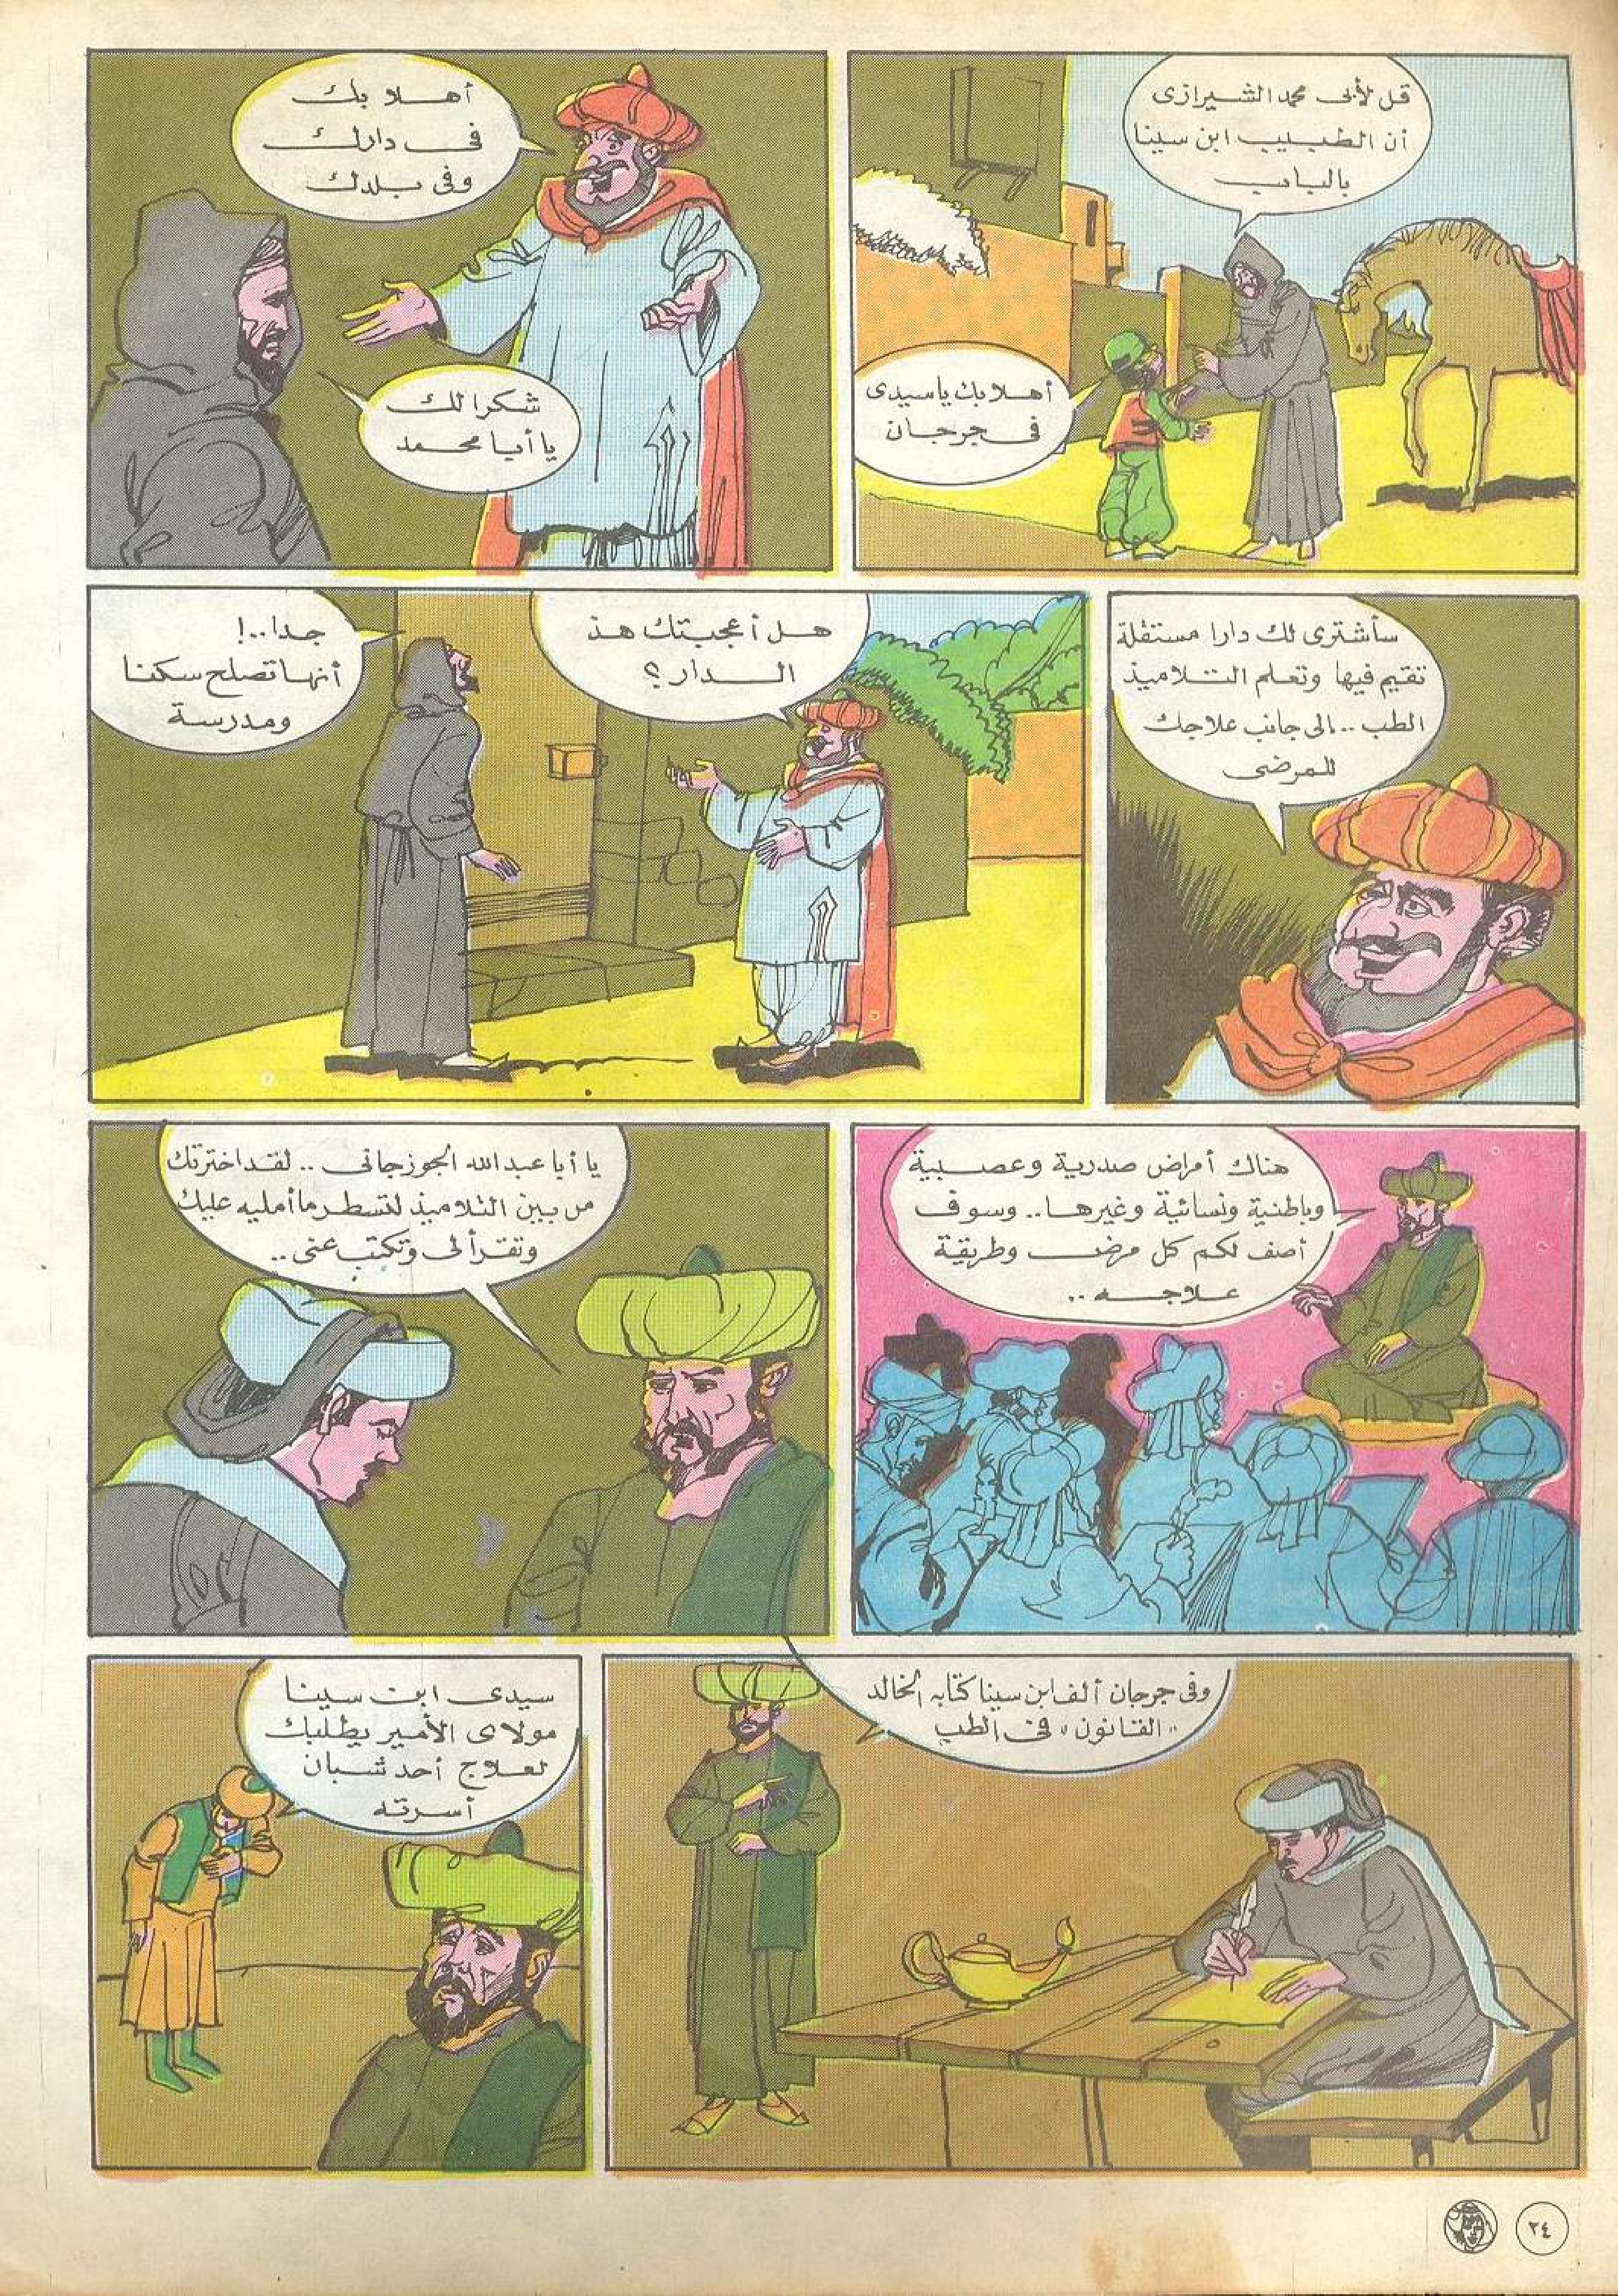 قل لأبى محمد الشيرازى
أن الطبيب ابن سينا
بالباب
أهلا بك يا سيدى
فى جرجان
أهلا بك
فى دارك
وفى بلدك
شكرا لك
يا أبا محمد
سأشترى لك دارا مستقلة
تقيم فيها وتعلم التلاميذ
الطب .. الى جانب علاجك
للمرضى
هل أعجبتك هذ
الدار ؟
جدا..!
أنها تصلح سكنا
ومدرسة
هناك أمراض صدرية وعصبية
وباطنية ونسائية وغيرها.. وسوف
أصف لكم كل مرض وطريقة
علاجه ..
يا أبا عبد الله الجوزجانى .. لقد اخترتك
من بين التلاميذ لتسطر ما أمليه عليك
وتقرأ لى وتكتب عنى ..
وفى جرجان ألف ابن سينا كتابه الخالد
"القانون" فى الطب
سيدى ابن سينا
مولاى الأمير يطلبك
لعلاج أحد شبان
أسرته
٢٤